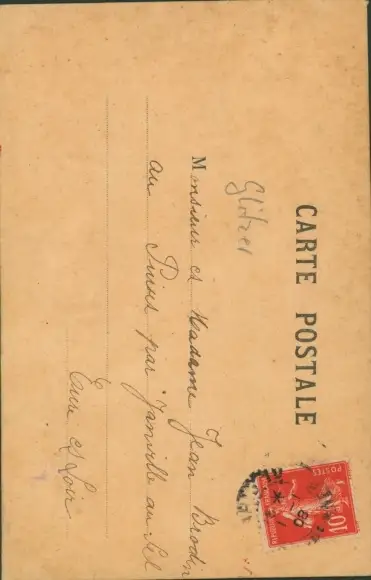 CARTE POSTALE
Glitzer
Monsieur et Madame Jean Brodin
au Puiset par Janville au Sel
Eure et Loir
POSTES
10